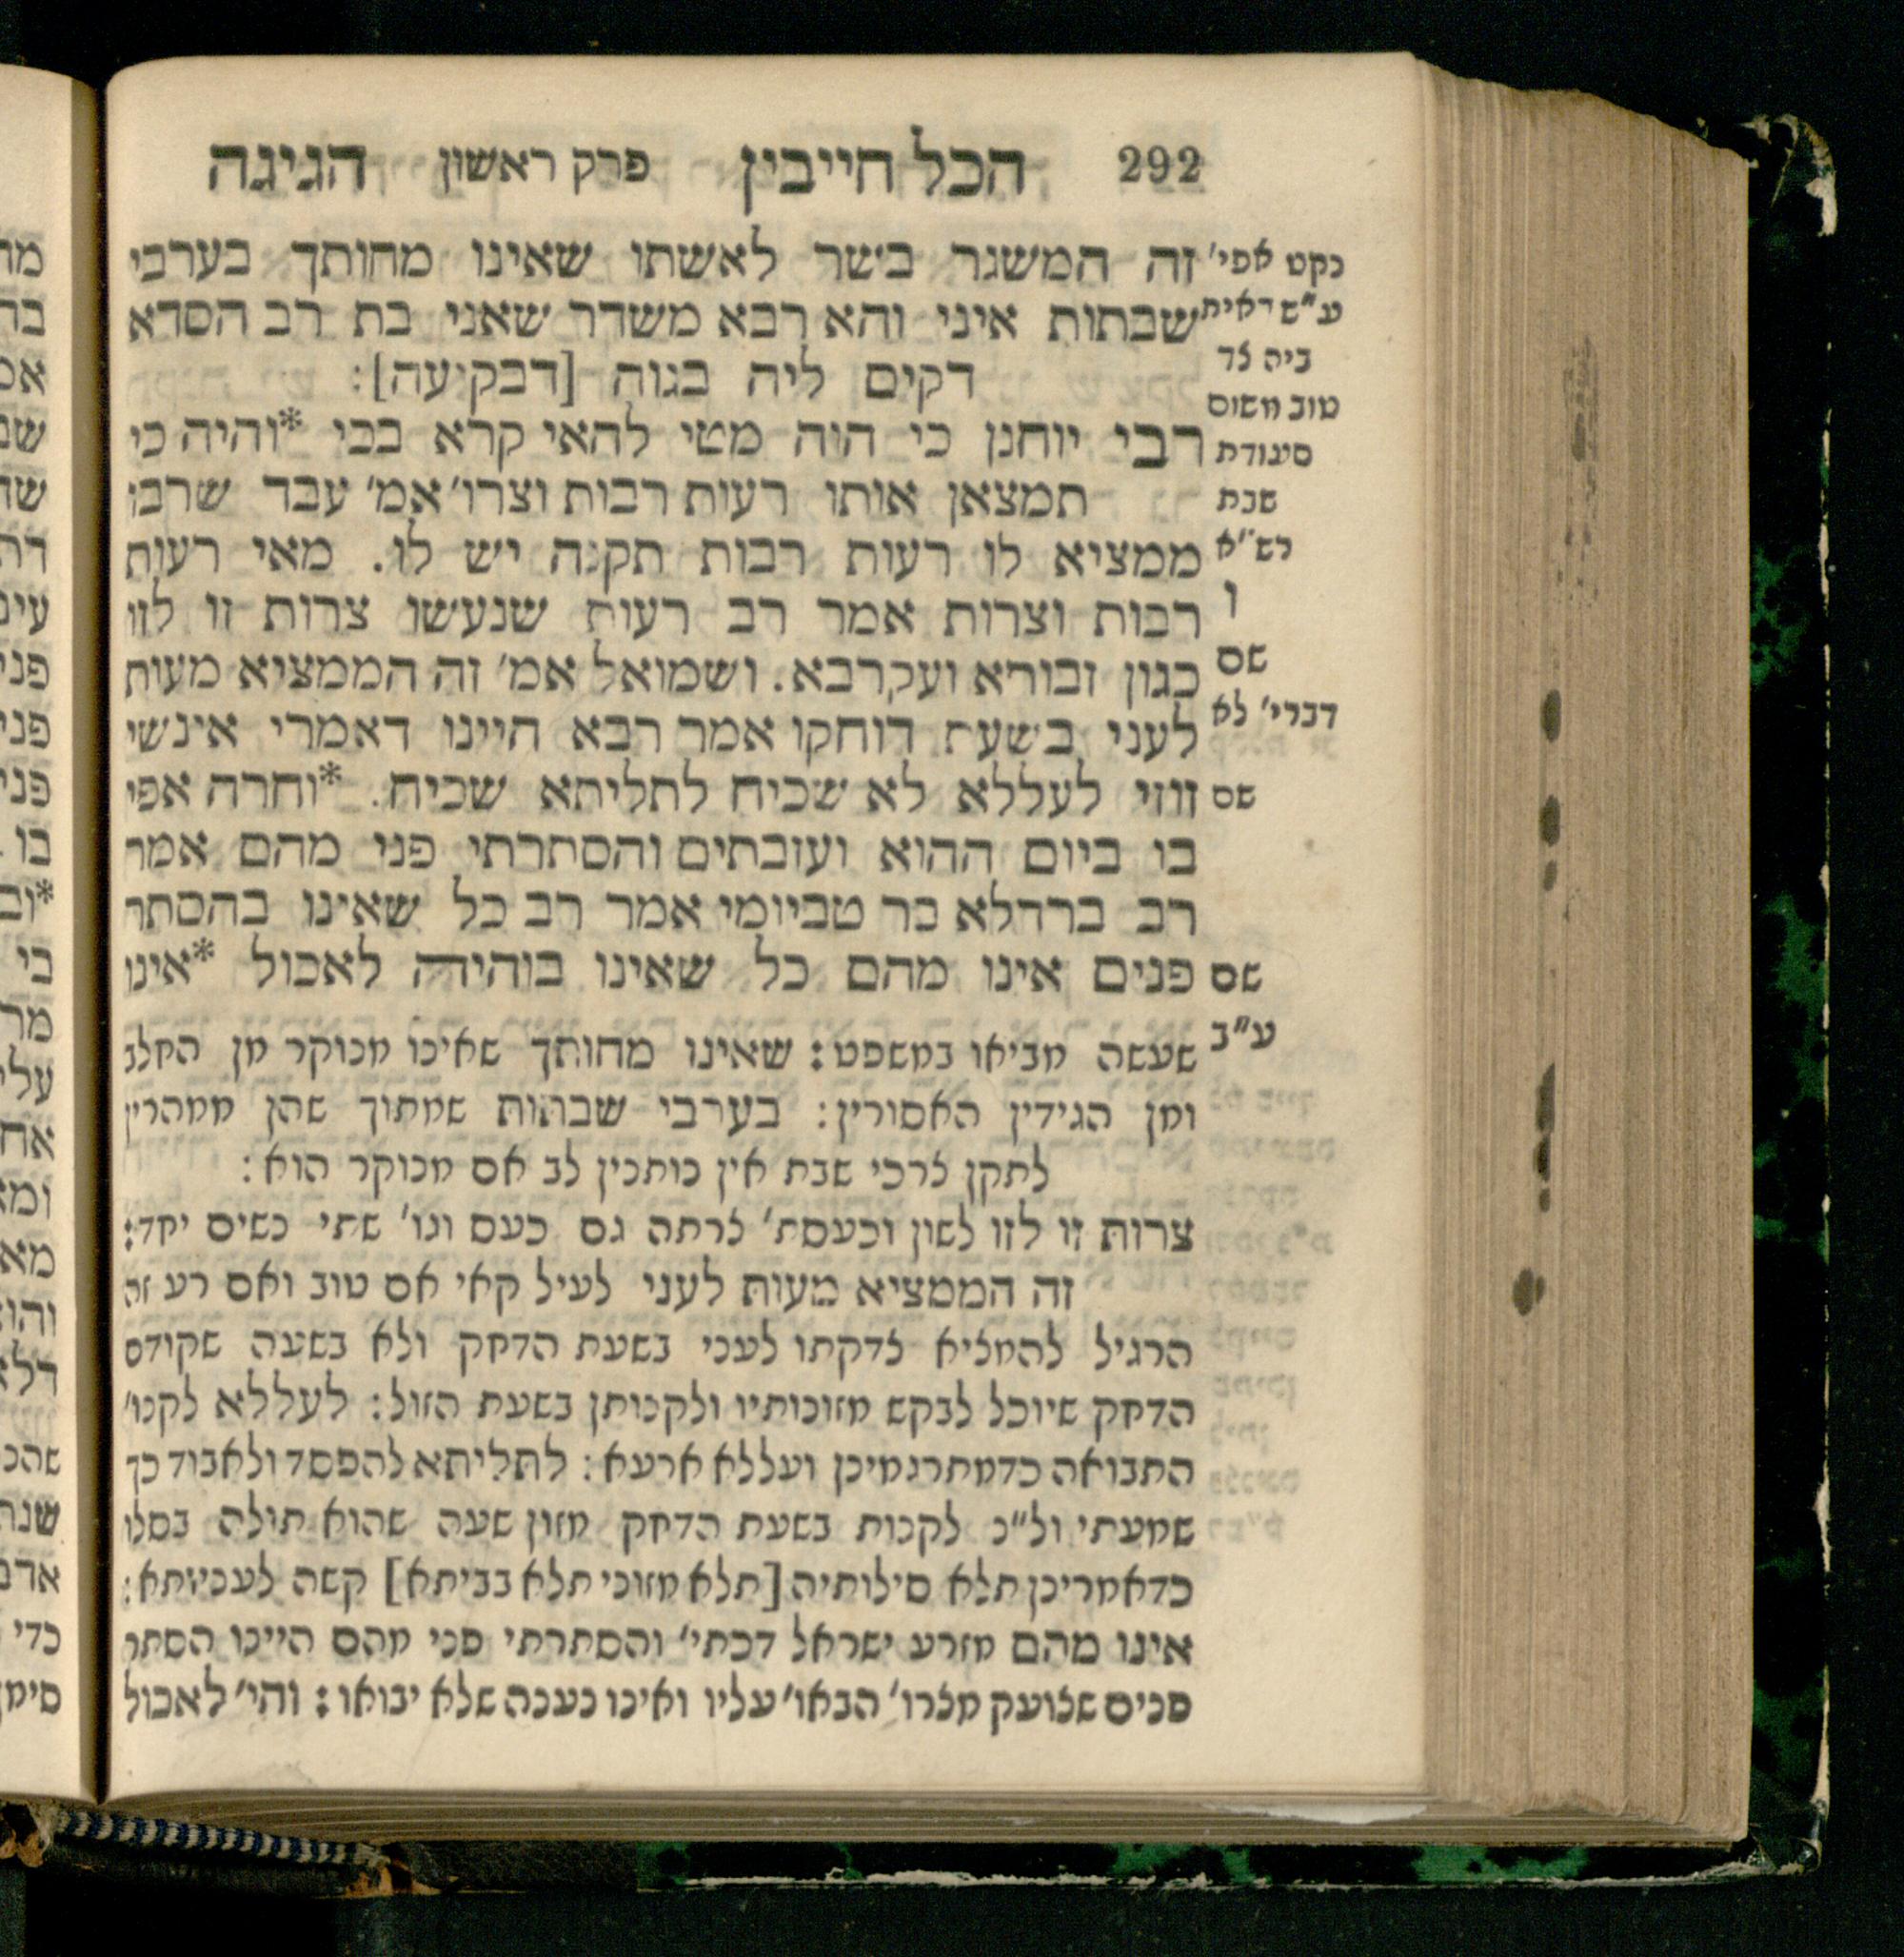 292 הכל חייבין פרק ראשון חגיגה
זה המשגר בשר לאשתו שאינו מחותך בערבי
שבתות איני והא רבא משדר שאני בת רב חסדא
דקים ליה בגוה [דבקיעה]:
רבי יוחנן כי הוה מטי להאי קרא בכי *והיה כי
תמצאן אותו רעות רבות וצרו׳ אמ׳ עבד שרבו
ממציא לו רעות רבות תקנה יש לו. מאי רעות
רבות וצרות אמר רב רעות שנעשו צרות זו לזו
כגון זבורא ועקרבא. ושמואל אמ׳ זה הממציא מעות
לעני בשעת דוחקו אמר רבא היינו דאמרי אינשי
זוזי לעללא לא שכיח לתליתא שכיח. *וחרה אפי
בו ביום ההוא ועזבתים והסתרתי פני מהם אמר
רב ברדלא בר טביומי אמר רב כל שאינו בהסתר
פנים אינו מהם כל שאינו בוהיה לאכול *אינו
שעשה מביאו במשפט: שאינו מחותך שאינו מנוקר מן החלב
ומן הגידין האסורין: בערבי שבתות שמתוך שהן ממהרין
לתקן צרכי שבת אין נותנין לב אם מנוקר הוא:
צרות זו לזו לשון וכעסת׳ צרתה גם כעס וגו׳ שתי נשים יחד:
זה הממציא מעות לעני לעיל קאי אם טוב ואם רע זה
הרגיל להמציא צדקתו לעני בשעת הדחק ולא בשעה שקודם
הדחק שיוכל לבקש מזונותיו ולקנותן בשעת הזול: לעללא לקנו׳
התבואה כדמתרגמינן ועללא ארעא: לתליתא להפסד ולאבוד כך
שמעתי ול״נ לקנות בשעת הדחק מזון שעה שהוא תולה בסלו
כדאמרינן תלא סילותיה [תלא מזוני תלא בביתא] קשה לעניותא:
אינו מהם מזרע ישראל דכתי׳ והסתרתי פני מהם היינו הסתר
פנים שצועק מצרו׳ הבאו׳ עליו ואינו נענה שלא יבואו: והי׳ לאכול
נקט אפי׳
ע״ש דאית
ביה צד
טוב משום
סעודת
שבת
רש״א
ו
שם
דברי׳ לא
שם
שם
ע״ב